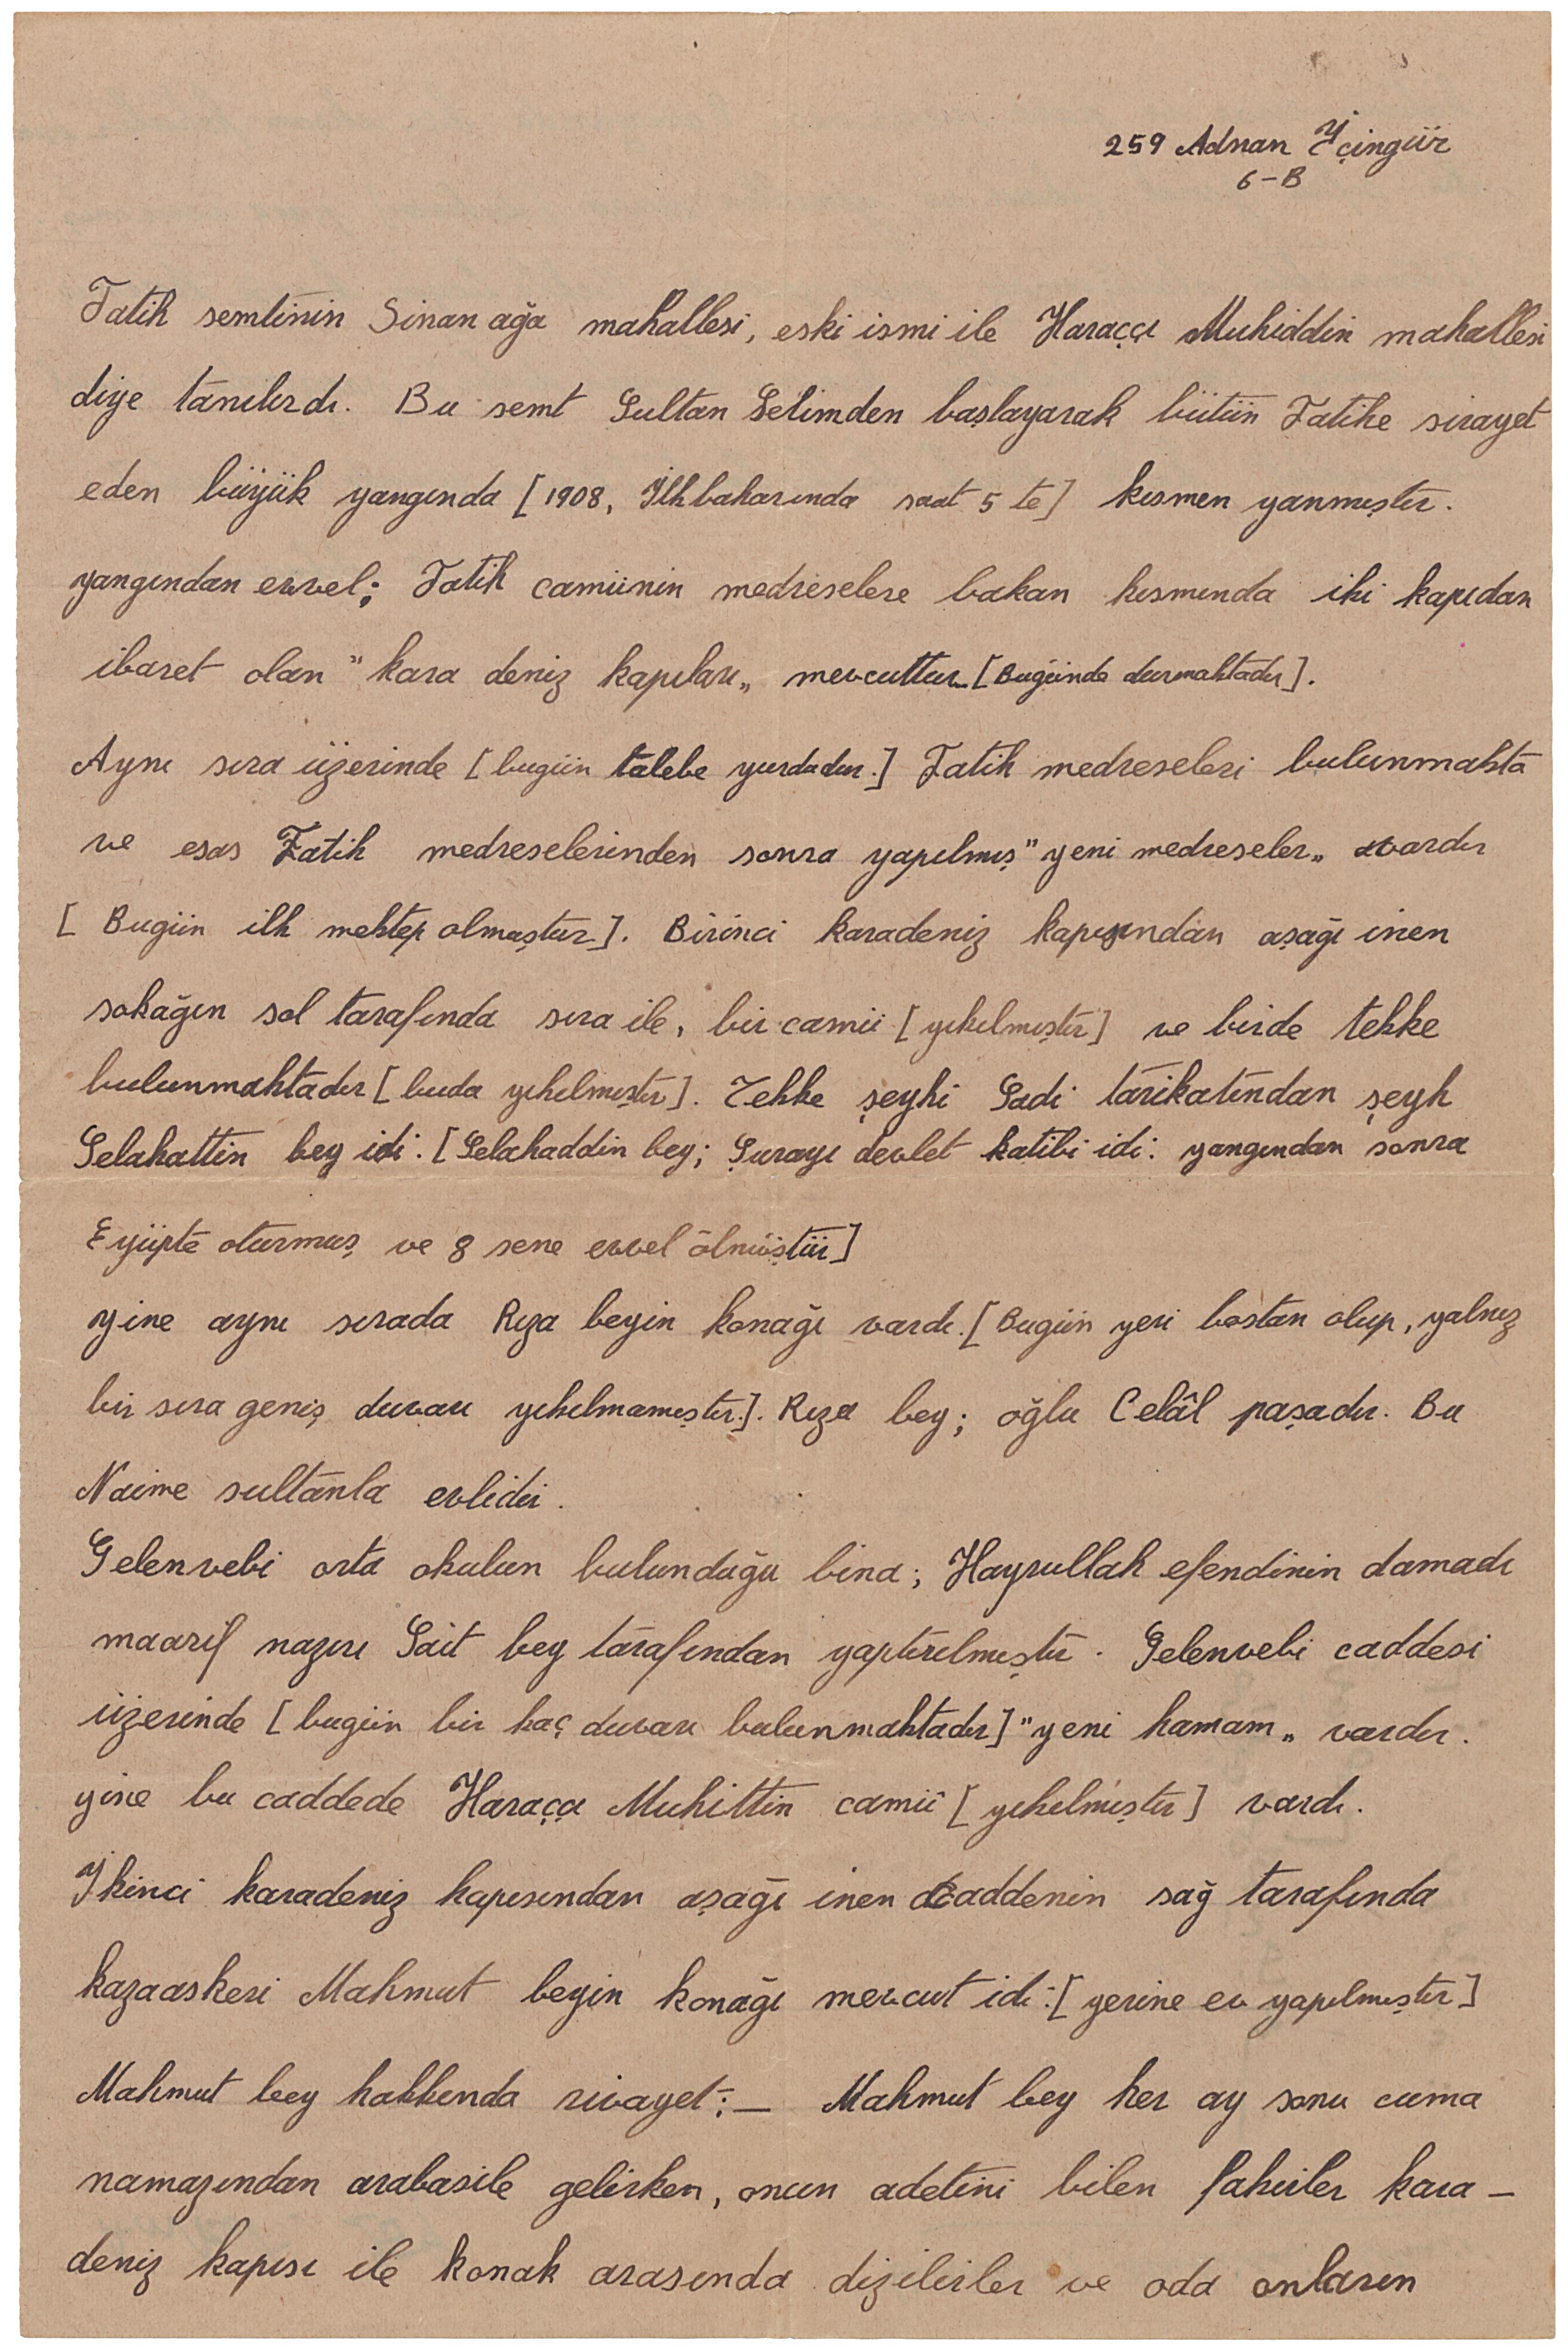 259 Adnan İçingür
6-B
Fatih semtinin Sinan ağa mahallesi, eski ismi ile Haraççı Muhiddin mahallesi
diye tanılırdı. Bu semt Sultan Selimden başlayarak bütün Fatihe sirayet
eden büyük yangında [1908, İlkbaharında saat 5 te] kısmen yanmıştır.
yangından evvel; Fatih camiinin medreselere bakan kısmında iki kapıdan
ibaret olan "kara deniz kapıları„ mevcuttur [Bugünde durmaktadır].
Aynı sıra üzerinde [bugün talebe yurdudur.] Fatih medreseleri bulunmakta
ve esas Fatih medreselerinden sonra yapılmış "yeni medreseler„ vardır
[Bugün ilk mektep olmuştur]. Birinci karadeniz kapısından aşağı inen
sokağın sol tarafında sıra ile, bir camii [yıkılmıştır] ve birde tekke
bulunmaktadır [buda yıkılmıştır]. Tekke şeyhi Sadi tarikatından şeyh
Selahattin bey idi. [Selahaddin bey; Şurayı devlet katibi idi. yangından sonra
Eyüpte oturmuş ve 8 sene evvel ölmüştür]
yine aynı sırada Rıza beyin konağı vardı. [Bugün yeri bostan olup, yalnız
bir sıra geniş duvarı yıkılmamıştır.]. Rıza bey; oğlu Celâl paşadır. Bu
Naime sultanla evlidir.
Gelenvebi orta okulun bulunduğu bina; Hayrullah efendinin damadı
maarif nazırı Sait bey tarafından yaptırılmıştır. Gelenvebi caddesi
üzerinde [bugün bir kaç duvarı bulunmaktadır] "yeni hamam„ vardır.
yine bu caddede Haraçça Muhittin camii [yıkılmıştır] vardı.
İkinci karadeniz kapısından aşağı inen caddenin sağ tarafında
kazaaskeri Mahmut beyin konağı mevcut idi: [yerine ev yapılmıştır]
Mahmut bey hakkında rivayet: — Mahmut bey her ay sonu cuma
namazından arabasile gelirken, onun adetini bilen fakirler kara -
deniz kapısı ile konak arasında dizilirler ve oda onların